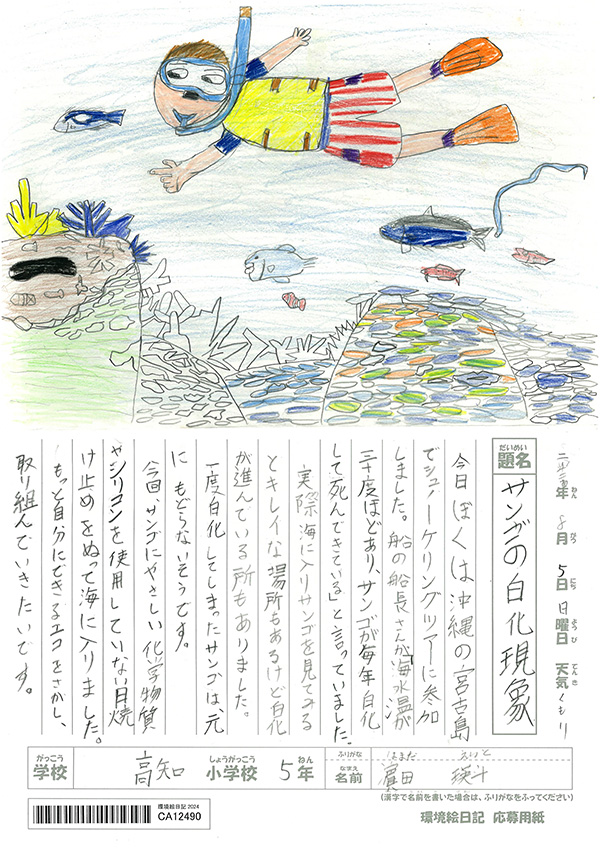 年 ねん 8 月 がつ 5 日 にち 日 曜日 ようび 天気 てんき くもり
題名 だいめい サンゴの白化現象
今日ぼくは沖縄の宮古島
でシュノーケリングツアーに参加
しました。船の船長さんが「海水温が
三十度ほどあり、サンゴが毎年白化
して死んできている」と言っていました。
実際海に入りサンゴを見てみる
とキレイな場所もあるけど白化
が進んでいる所もありました。
一度白化してしまったサンゴは、元
にもどらないそうです。
今回、サンゴにやさしい化学物質
やシリコンを使用していない日焼
け止めをぬって海に入りました。
もっと自分にできるエコをさがし、
取り組んでいきたいです。
がっこう しょうがっこう ねん ふりがな はまだ
学校 高知 小学校 5年 なまえ 名前 濵田 瑛斗
(漢字で名前を書いた場合は、ふりがなをふってください)
環境絵日記 2024
CA12490
環境絵日記 応募用紙